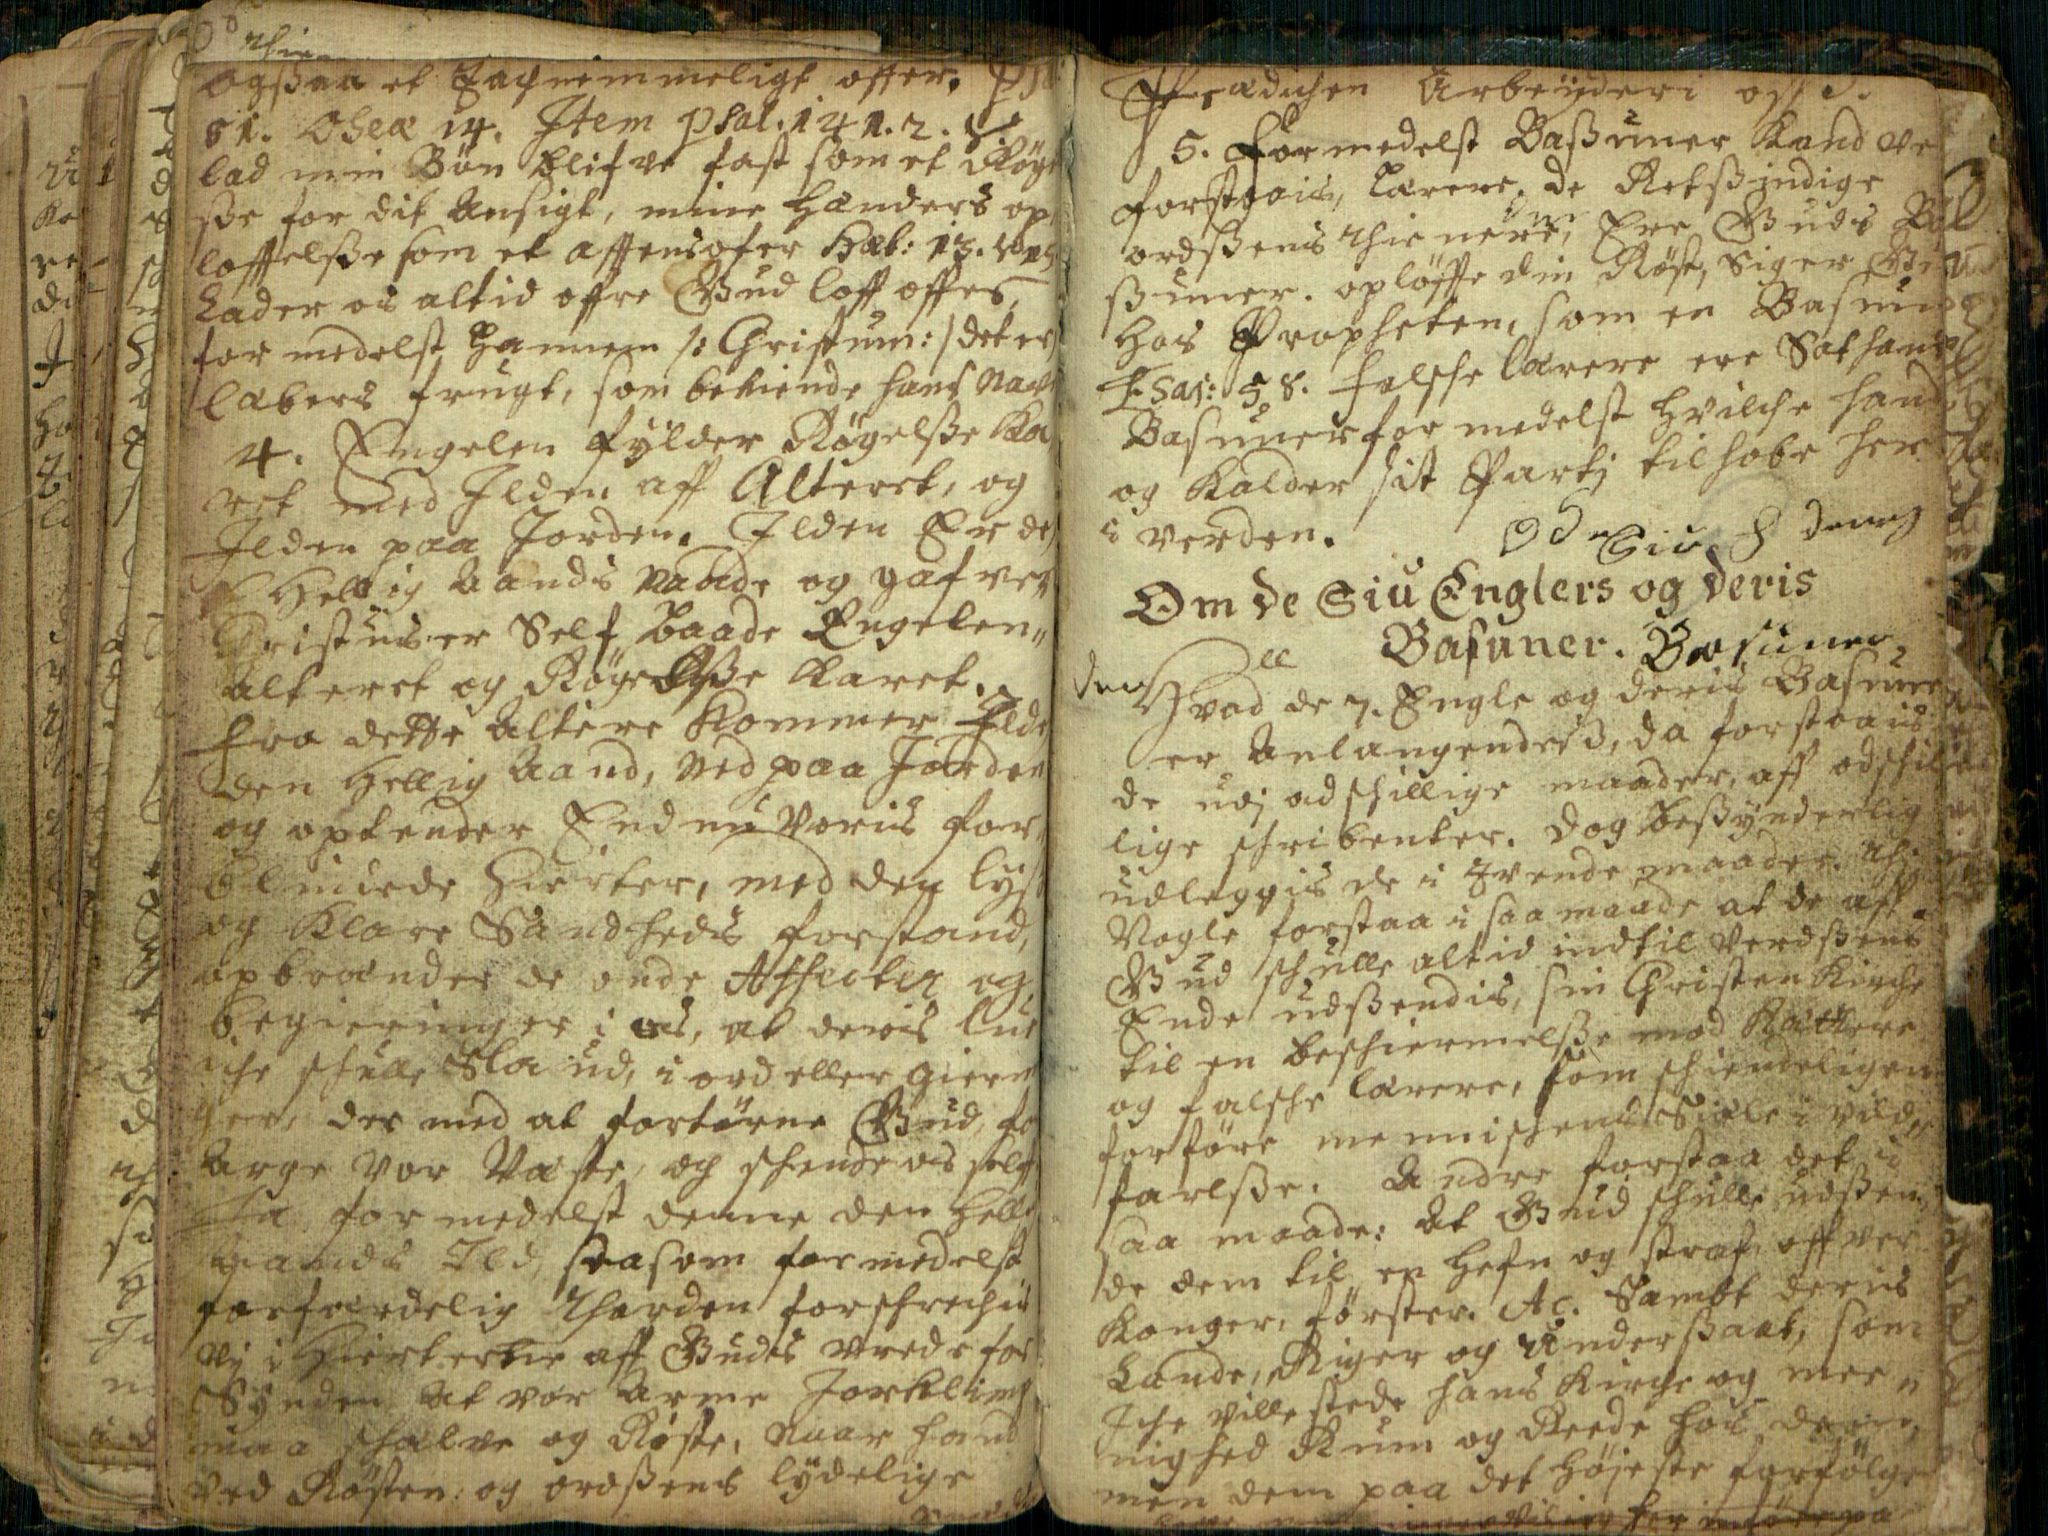 ogsaa et Tachnemmeligt offer. Psal
51. Osea 14. Item psal. 141. 2.
lad min Bön blifve fast som et Røge
sße for dit Ansigt, mine Hænders op
løffelsße som et affensofer Hæb: 13. v 15
Lader os altid offre Gud loff offer,
for medelst Hannem /: Christum :/ det er
læbers frugt, som bekiende hans Nafn
4. Engelen fylder Røgelsße Ka
ret med Ilden aff Alteret, og
Ilden paa Jorden. Ilden Er de
Hellig Aands Naade og gafver
Christus er Self baade Engelen
Alteret og Røgelsße Karet.
Fra dette Altere Kommer Ild
den Hellig Aand, Ned paa Jorden
og optender End nu voris for
blindede Hierter, med den lys
og Klare Sandheds forstand,
opbrænder de onde Affecter og
begieringer i os, at deris lue
iche schulle Sla ud, i ord eller giern
ger, der med at fortørne Gud, for
Arge vor Næste, og schende os self
Ja for medelst denne den Helli
Aands Ild, saasom formedelst
forfærdelig Thorden forschrechis
vij i Hierterne aff Guds vrede for
Synden At vor Arme Jorklimp
maa schelve og Röste, Naar hand
ved Røsten og ordsßens lydelige
Prædichen Arbeÿder i os
5. Formedelst Basßuner Kand ve
forstaais, Lærere. de Retsßindige
ordsßens Thienere, Ere Guds Ba
sßuner. opløffte din Røst, siger Gud
Hos Propheten, som en Basun
Esaj: 58. Falsche Lærere ere Sathans
Basuner for medelst Hvilche hand
og Kalder sit Partj tilhobe her
i verden.
Om de Siu Englers og deris
Basuner. Basuner
Hvad de 7. Engle og deris Basuner
er Anlangendesß, da forstaais
de udj adschillige maader, aff adschil
lige schribenter. Dog besßynderlig
udleggis de i Tvende maader. Thj
Nogle forstaa i saa maade at de aff
Gud schulle altid indtil verdsßens
Ende udsßendis, sin Christen Kirche
til en beschiermelsße mod Kættere
og falsche lærere, som schiendeligen
forföre mennischens Siæle i vild
farelsße. Andre forstaa det i
saa maade: At Gud schulle udsßen
de dem til en Hefn og straf offver
Konger, förster. Ac. Sambt deris
Lande, Riger og Undersßaat, som
Iche ville stede hans Kirche og mee
nighed Rum og Reede hos dem,
men dem paa det Højeste forfölge